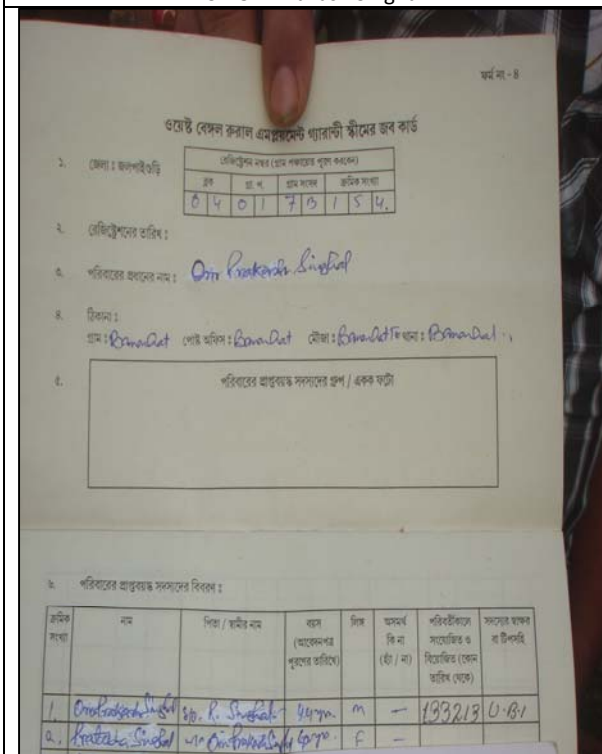 ফর্ম নং - ৪
ওয়েষ্ট বেঙ্গল রুরাল এমপ্লয়মেন্ট গ্যারান্টী স্কীমের জব কার্ড
১. জেলা : জলপাইগুড়ি
রেজিষ্ট্রেশন নম্বর (গ্রাম পঞ্চায়েত পূরণ করবেন)
ব্লক গ্রা. প. গ্রাম সংসদ ক্রমিক সংখ্যা
0 4 0 1 7 B 1 5 4.
২. রেজিষ্ট্রেশনের তারিখ :
৩. পরিবারের প্রধানের নাম : Om Prakash Singhal
৪. ঠিকানা :
গ্রাম : পোষ্ট অফিস : মৌজা : থানা :
৫. পরিবারের প্রাপ্তবয়স্ক সদস্যদের গ্রুপ / একক ফটো
৬. পরিবারের প্রাপ্তবয়স্ক সদস্যদের বিবরণ :
ক্রমিক সংখ্যা নাম পিতা / স্বামীর নাম বয়স (আবেদনপত্র পূরণের তারিখে) লিঙ্গ অসমর্থ কি না (হ্যাঁ / না) পরিবর্তীকালে সংযোজিত ও বিয়োজিত (কোন তারিখ থেকে) সদস্যের স্বাক্ষর বা টিপসহি
1. Om Prakash Singhal S/o. R. Singhal. m — 133213 U.B.I
Singhal F —